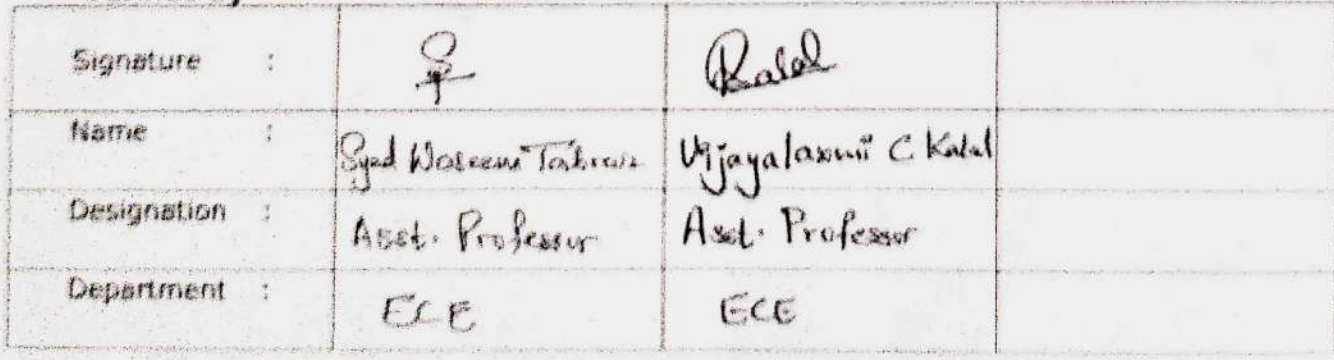 Signature : Kalal
Name : Syed Waseem Tabraiz Vijayalaxmi C Kalal
Designation : Asst. Professor Asst. Professor
Department : ECE ECE